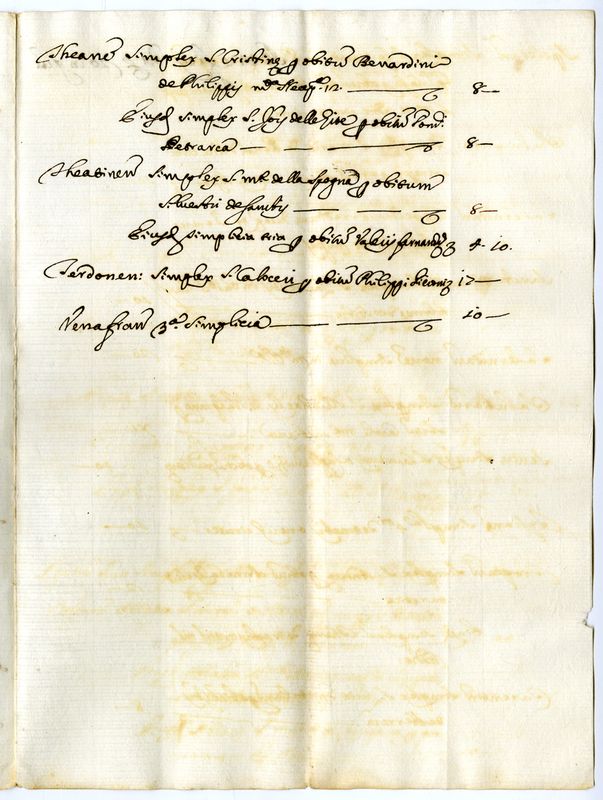 Theanen̄ simplex S. Cristinę p obitum̄ Benardini
de Philippis 12. — 8 —
Eiusd simplex S. Jois delle p obitum̄
Petrarca — — — 8 —
Theatinen̄ simplex S. Mᵉ della Spegna p obitum
Siluestri de Sanctis — — — 8 —
Eiusd simplicia tria p obitum̄ Valerij farnandez 4. 10.
Terdonen: simplex S. Caloceri p obitum̄ Philippi 12 —
Venafran̄ 3ᵃ. simplicia — — 10 —